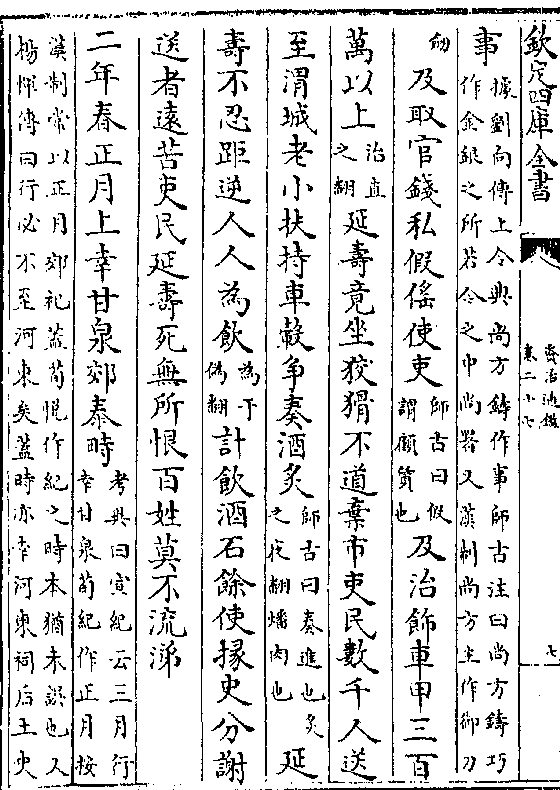 欽定四庫全書
資治通鑑
卷二十七
七
事
據劉向傳上令典尚方鑄作事師古注曰尚方鑄巧
作金銀之所若今之中尚署又漢制尚方主作御刀
劒
及取官錢私假徭使吏
師古曰假
謂顧賃也
及治飾車甲三百
萬以上
治直
之翻
延壽竟坐狡猾不道棄市吏民數千人送
至渭城老小扶持車轂爭奏酒炙
師古曰奏進也炙
之夜翻燔肉也
延
壽不忍距逆人人為飲
為于
偽翻
計飲酒石餘使掾史分謝
送者遠苦吏民延壽死無所恨百姓莫不流涕
二年春正月上幸甘泉郊泰畤
考異曰宣紀云三月行
幸甘泉荀紀作正月按
漢制常以正月郊祀蓋荀悅作紀之時本猶未誤也又
楊惲傳曰行必不至河東矣蓋時亦幸河東祠后土史